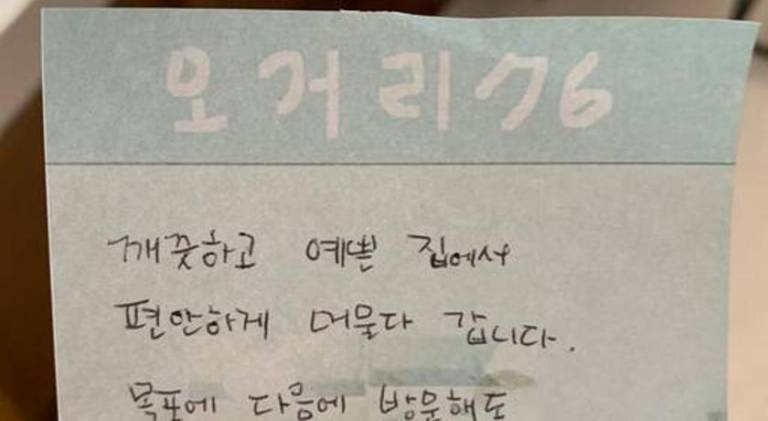 오거리76
깨끗하고 예쁜 집에서
편안하게 머물다 갑니다.
목포에 다음에 방문해도